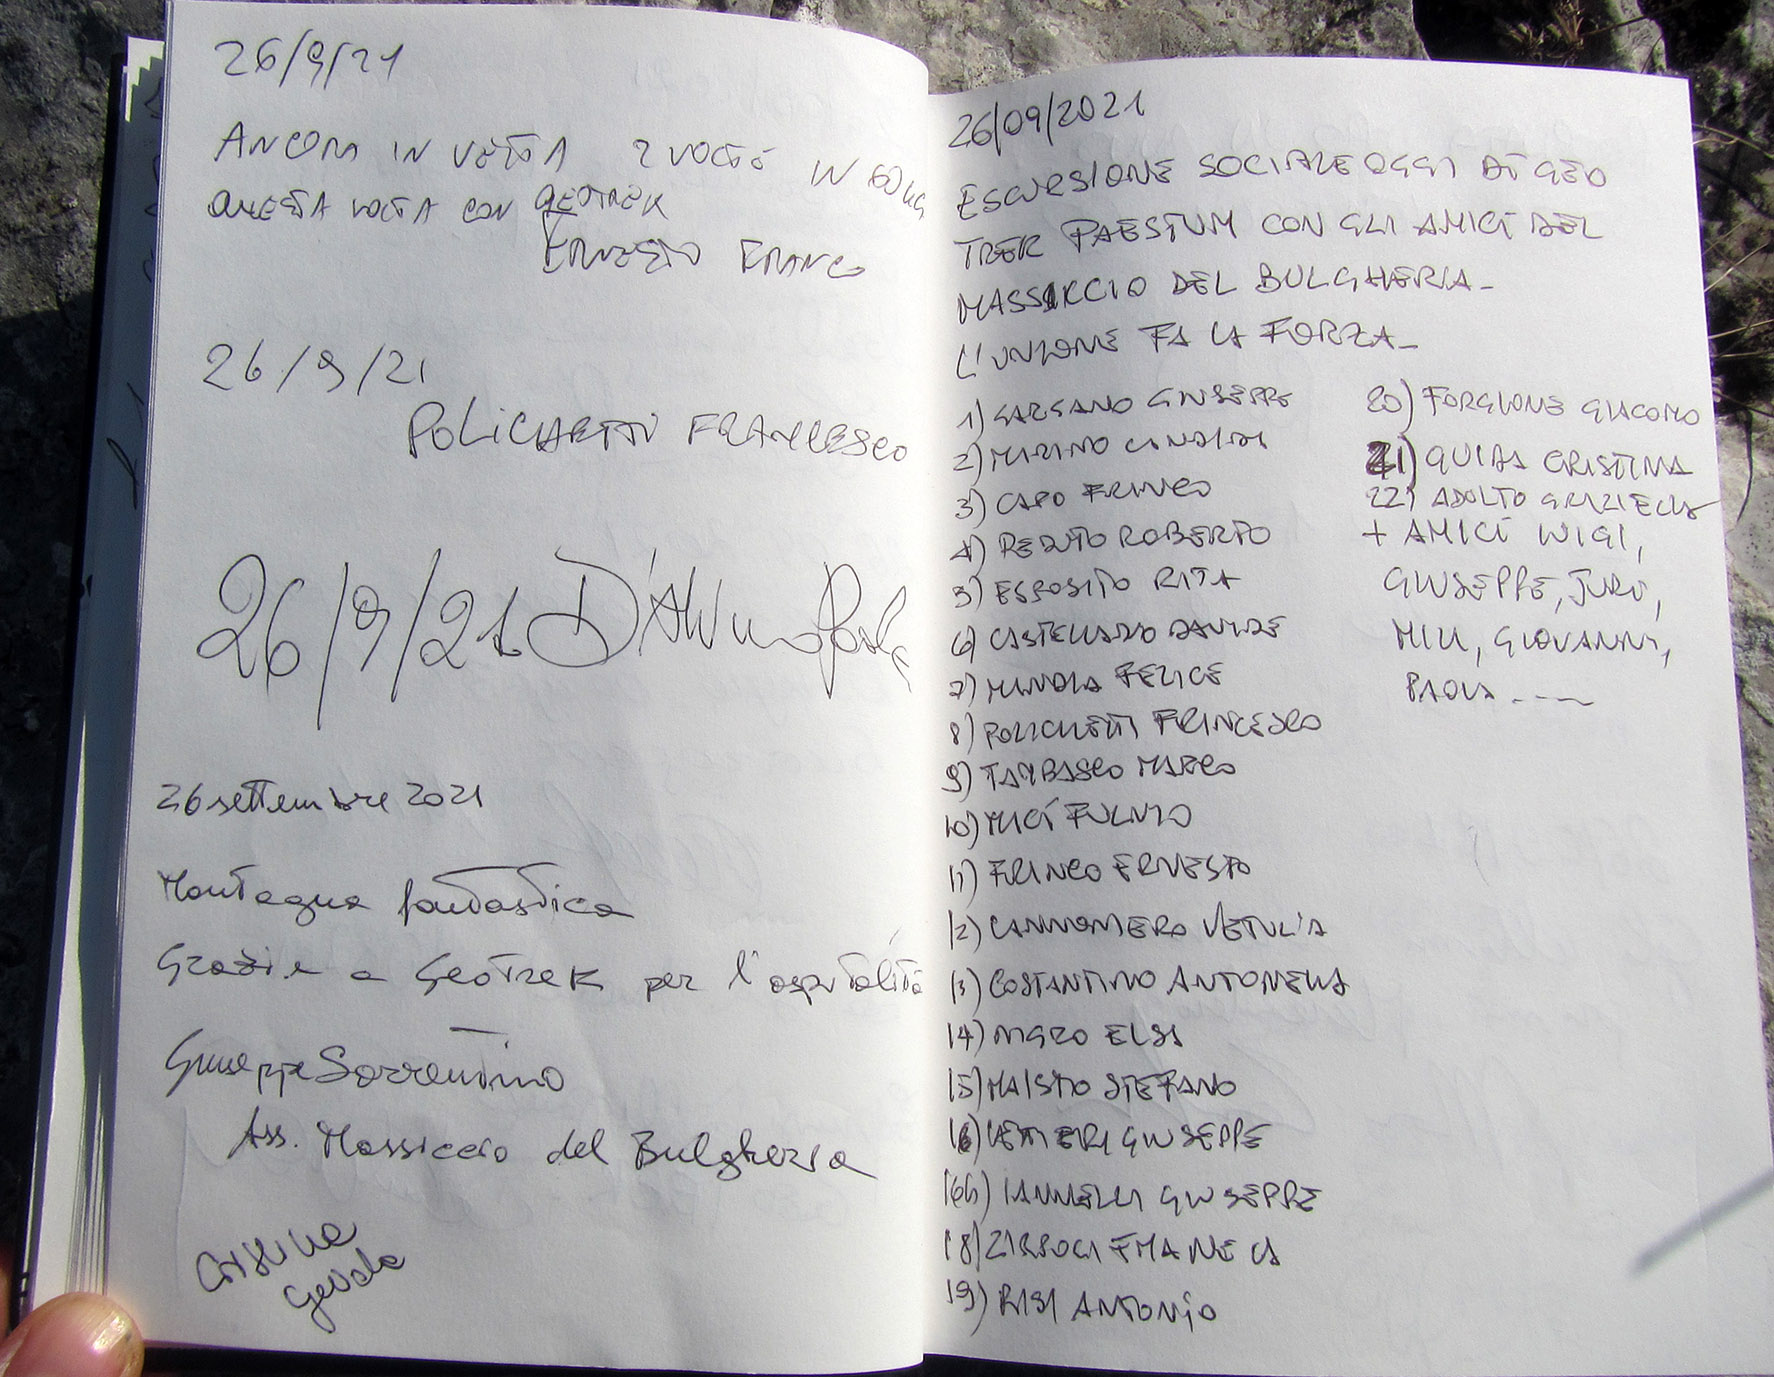 26/9/21
ANCORA IN VETTA 2 VOLTE IN
QUESTA VOLTA CON GEOTREK
ERNESTO FRANCO
26/9/21
POLICHETTI FRANCESCO
26/9/21
26 settembre 2021
Montagna fantastica
Grazie a GEOTREK per l'ospitalità
Giuseppe Sorrentino
Ass. Massiccio del Bulgheria
26/09/2021
ESCURSIONE SOCIALE OGGI DI GEO
TREK PAESTUM CON GLI AMICI DEL
MASSICCIO DEL BULGHERIA-
L'UNIONE FA LA FORZA-
1) GARGANO GIUSEPPE
2) MARINO
3) CAPO FRANCO
4) REDUTO ROBERTO
5) ESPOSITO RITA
6) CASTELLANO DAVIDE
7) FELICE
8) POLICHETTI FRANCESCO
9) TAMBASCO MARCO
10) MICÍ FULVIO
11) FRANCO ERNESTO
12) CANNOMERO VETULIA
13) COSTANTINO ANTONELLA
14) ELSA
15) MAISTO STEFANO
16) GIUSEPPE
16b) IANNELLI GIUSEPPE
18)
19) RISI ANTONIO
20) FORGIONE GIACOMO
21) GUIDA CRISTINA
22) ADOLTO GRAZIELLA
+ AMICI LUIGI,
GIUSEPPE, JURI,
GIOVANNI,
PAOLA ----